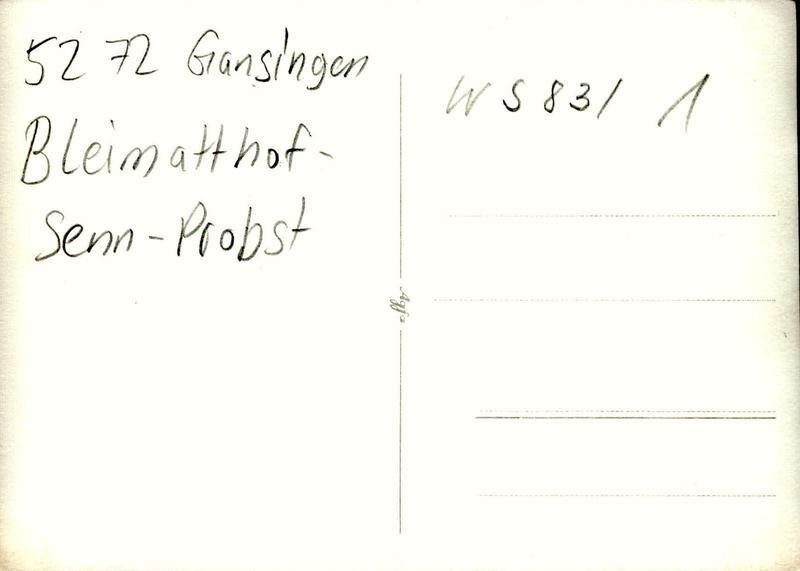 5272 Gansingen
Bleimatthof-
Senn-Probst
WS 83/ 1
Agfa